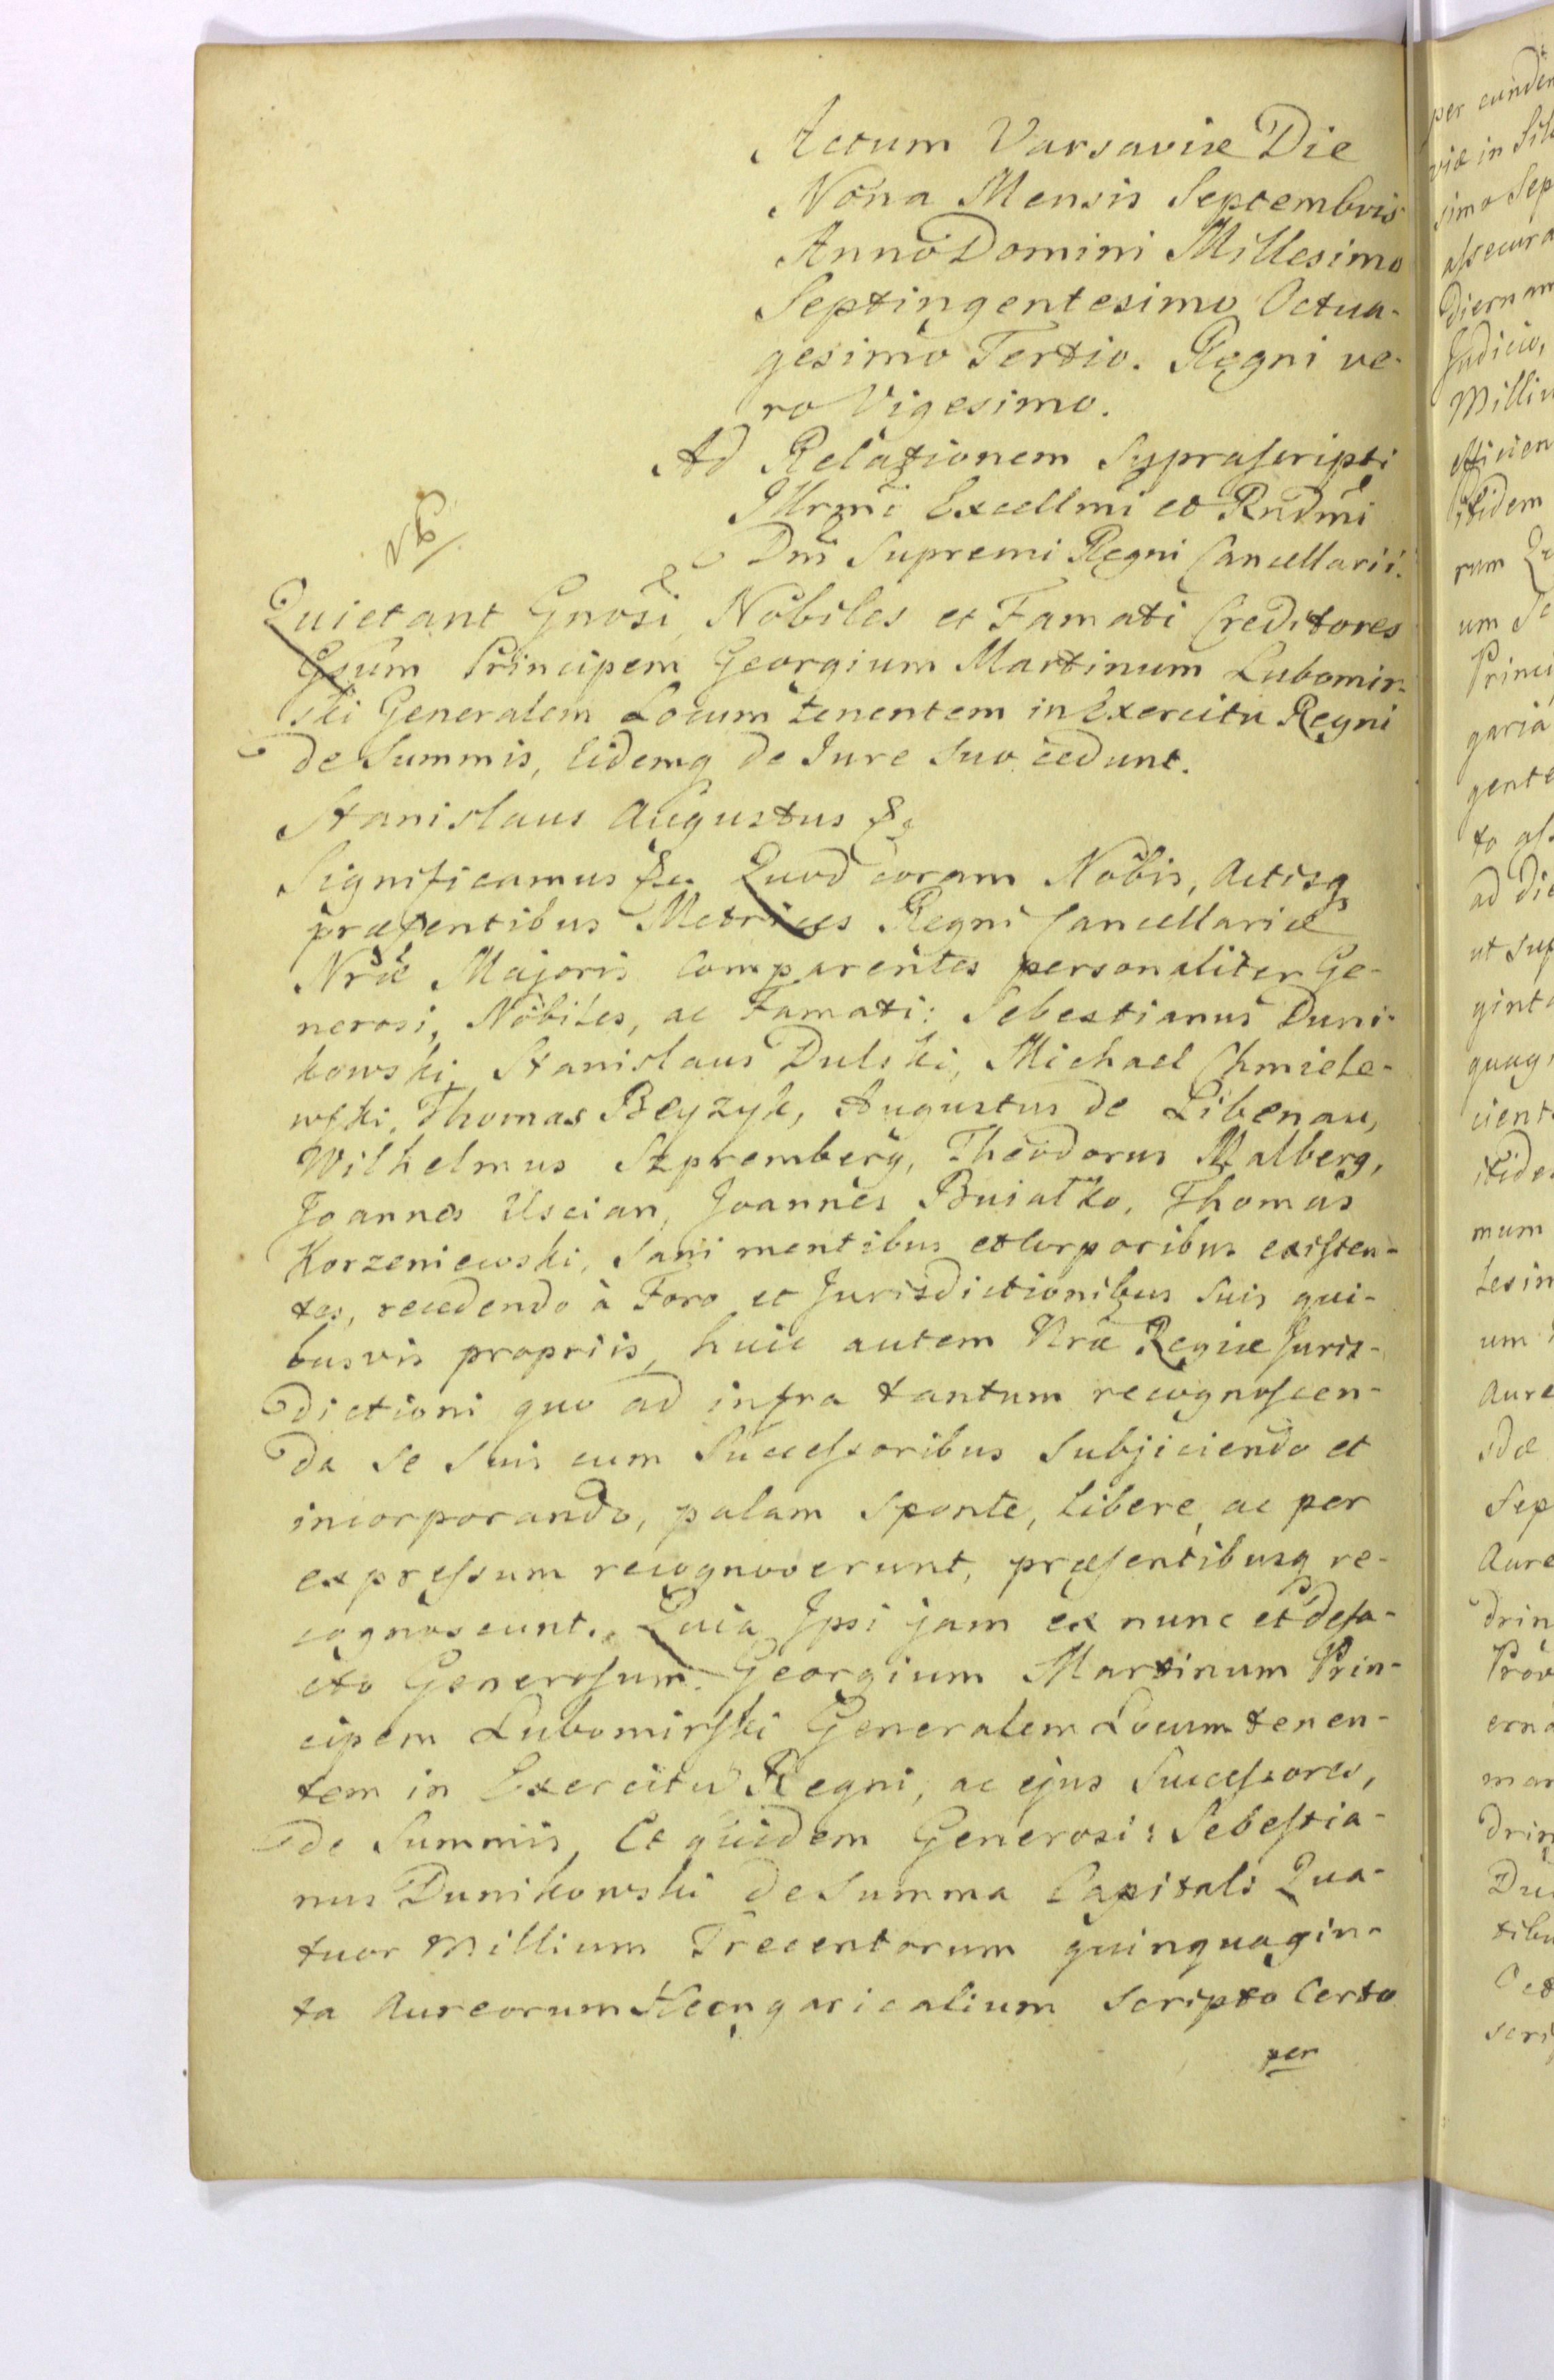 Actum Varsaviæ Die
Nona Mensis Septembris
Anno Domini Millesimo
Septingentesimo Octua-
gesimo Tertio. Regni ve-
ro Vigesimo.
Ad Relationem Suprascripti
Illrmi Excellmi et Rndmi
Dni Supremi Regni Cancellarii.
Quietant Gnosi, Nobiles et Famati Creditores
Gsum Principem Georgium Martinum Lubomir-
ski Generalem Locum tenentem in Exercitu Regni
de Summis, Eidemq de Jure suo cedunt.
Stanislaus Augustus &c
Significamus &c. Quod coram Nobis, Actisq
præsentibus Metrices Regni Cancellariæ
Nræ Majoris comparentes personaliter Ge-
nerosi, Nobiles, ac Famati: Sebestianus Duni-
kowski, Stanislaus Dulski, Michael Chmiele-
wski, Thomas Beyzyk, Augustus de Libenau,
Wilhelmus Szpremberg, Theodorus Malberg,
Joannes Uscian, Joannes Buiałko, Thomas
Korzeniewski, Sani mentibus et Corporibus existen-
tes, recedendo à Foro et Jurisdictionibus suis qui-
busvis propriis, huic autem Nræ Regiæ Juris-
dictioni quo ad infra tantum recognoscen-
da se suis cum Successoribus subjiciendo et
incorporando, palam sponte, libere, ac per
expressum recognoverunt, præsentibusq re-
cognoscunt. Quia Ipsi jam ex nunc et defa-
cto Generosum Georgium Martinum Prin-
cipem Lubomirski Generalem Locum tenen-
tem in Exercitu Regni, ac ejus Successores,
de Summis, Et quidem Generosi: Sebestia-
nus Dunikowski de Summa Capitali Qua-
tuor Millium Trecentorum quinquagin-
ta Aureorum Hungaricalium Scripto Certo
per
per eundem
viæ in
simo Sep
assecura
diernam
Judicio,
Milliu
efficien
itidem
rum
um
Princi
garia
gente
to
ad die
ut sup
gint
quag
cient
itide
mum
tes in
um
Aure
Sep
Aure
drin
Prov
erna
mar
drin
Du
tibu
Oct
scri